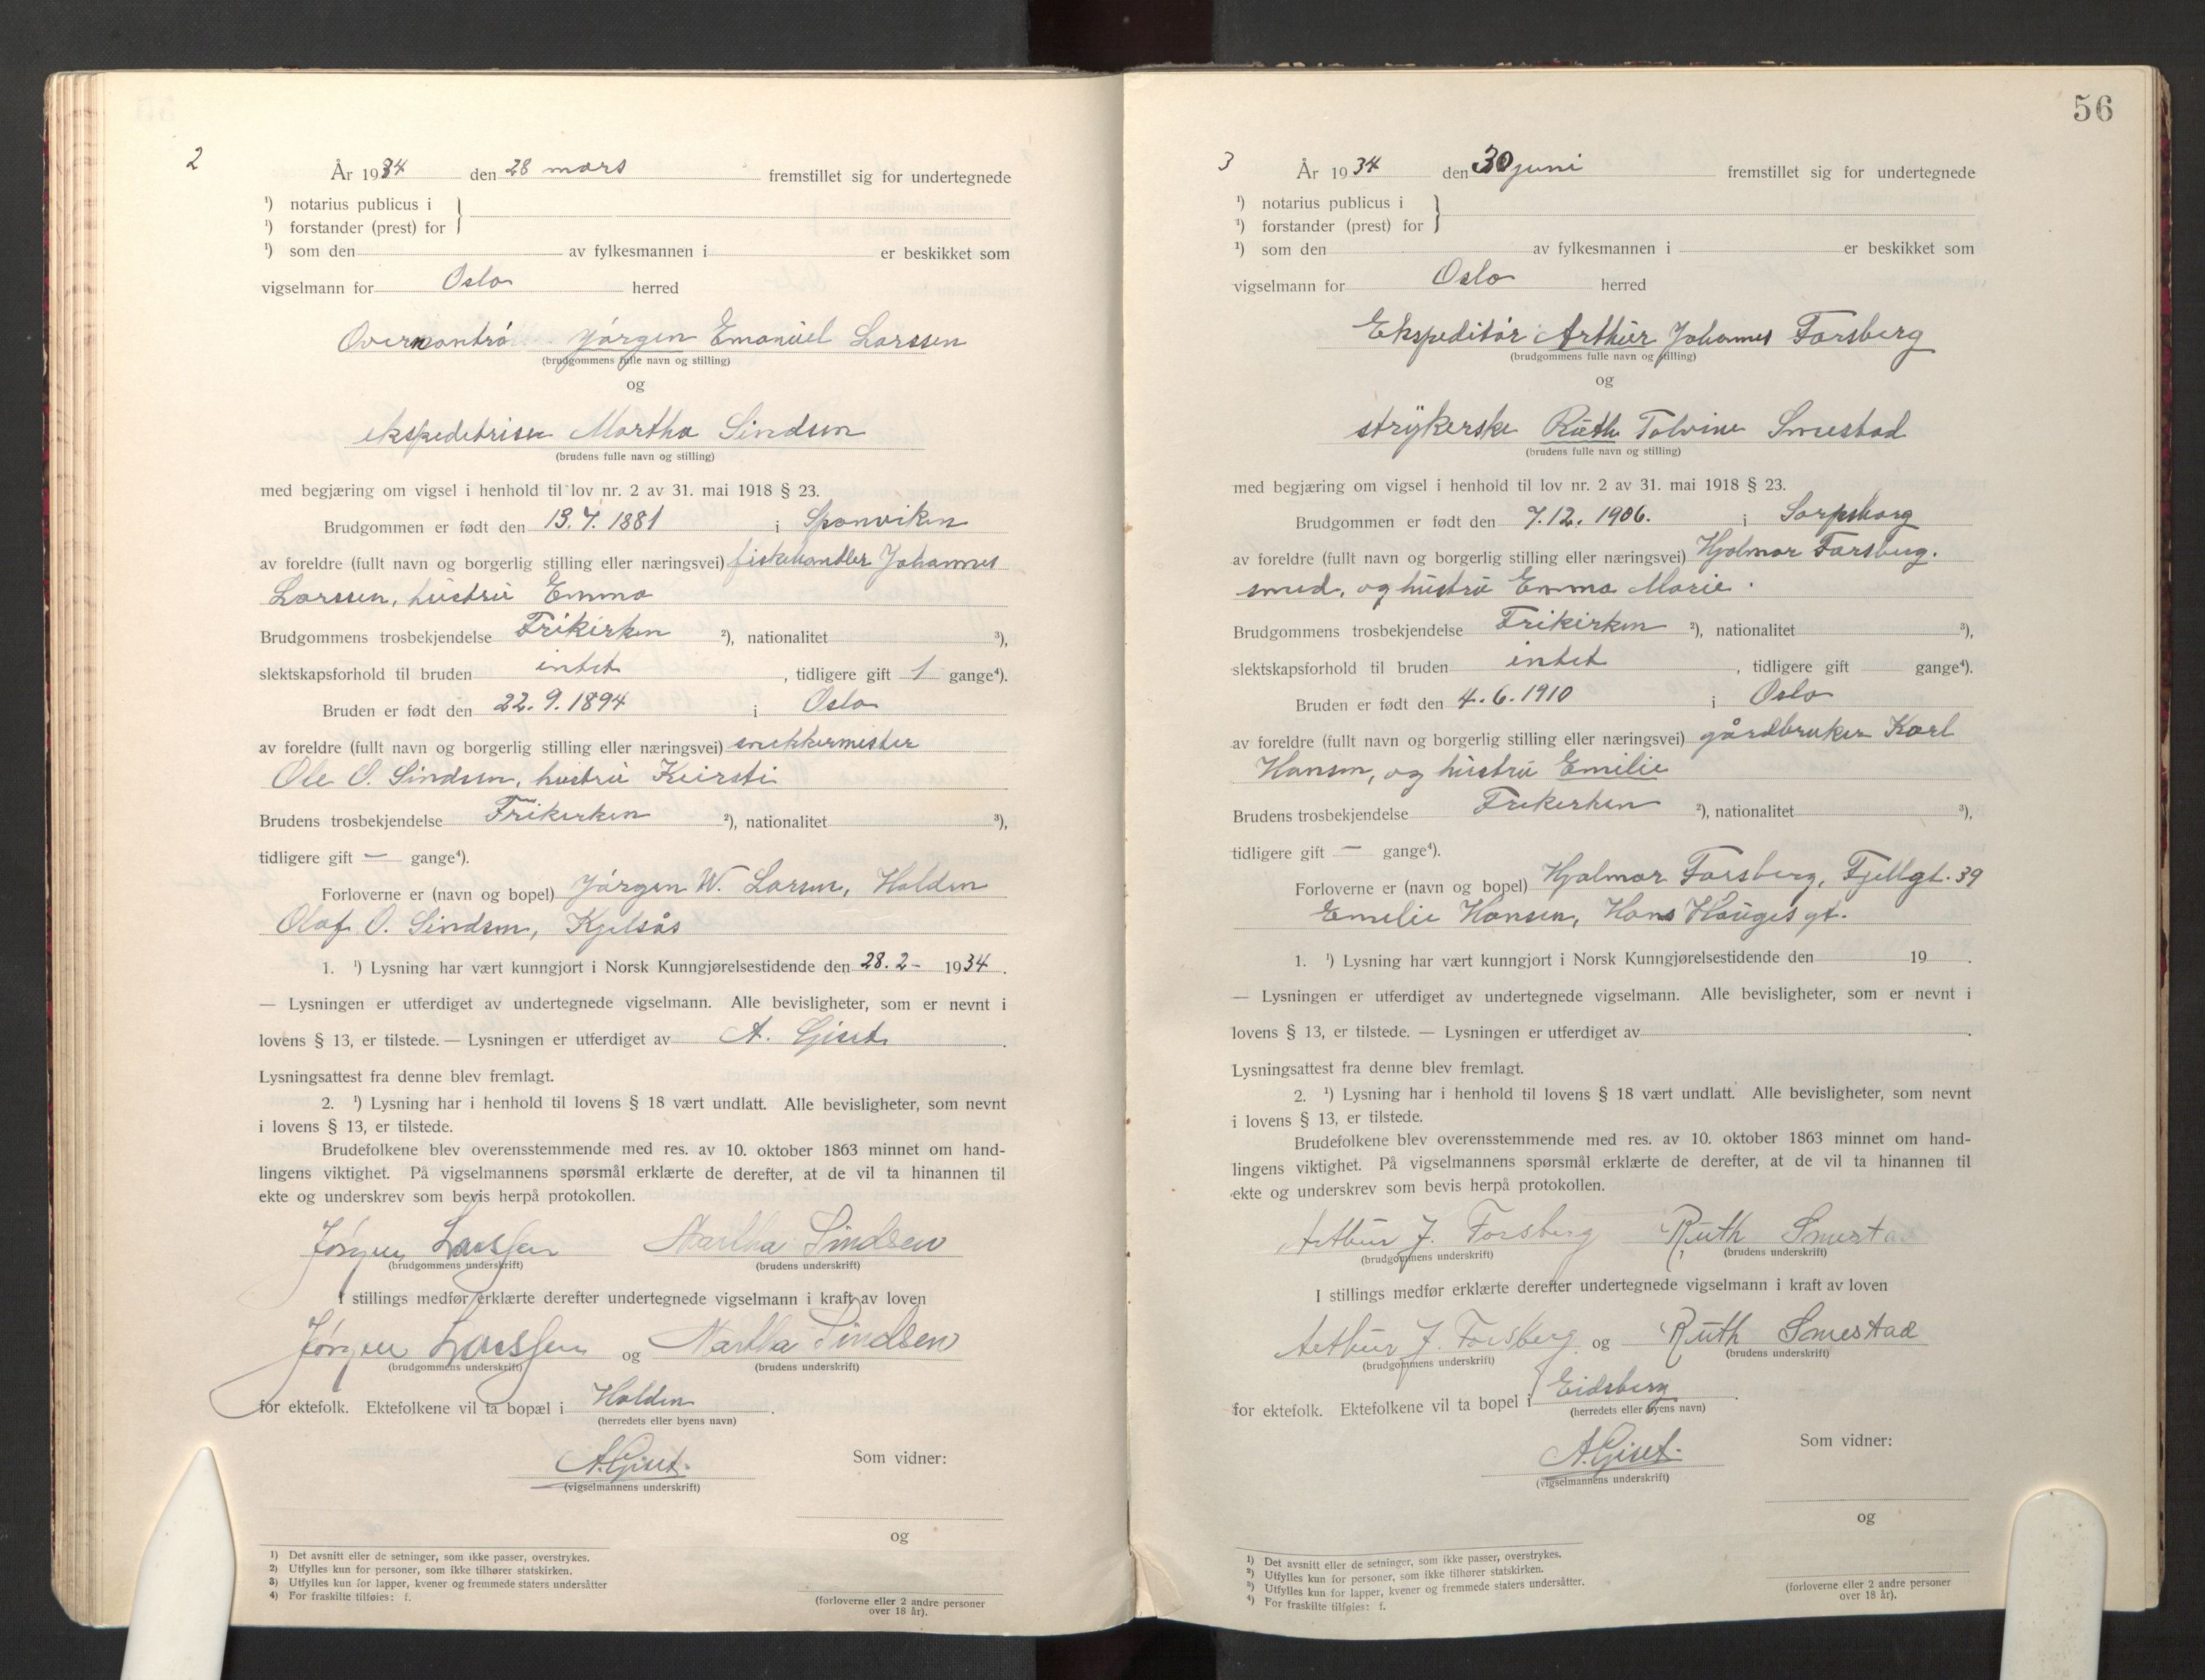 2
År 1934 den 28 mars fremstillet sig for undertegnede
¹) notarius publicus i
¹) forstander (prest) for
¹) som den av fylkesmannen i er beskikket som
vigselmann for Oslo herred
Jørgen Emanuel Larssen
(brudgommens fulle navn og stilling)
og
ekspeditrise Martha Sindsen
(brudens fulle navn og stilling)
med begjæring om vigsel i henhold til lov nr. 2 av 31. mai 1918 § 23.
Brudgommen er født den 13.7.1881 i Sponviken
av foreldre (fullt navn og borgerlig stilling eller næringsvei) fiskehandler Johannes
Larssen, hustru Emma
Brudgommens trosbekjendelse Frikirken ²), nationalitet ³),
slektskapsforhold til bruden intet, tidligere gift 1 gange⁴).
Bruden er født den 22.9.1894 i Oslo
av foreldre (fullt navn og borgerlig stilling eller næringsvei) snekkermester
Ole O. Sindsen, hustru Keirsti
Brudens trosbekjendelse Frikirken ²), nationalitet ³),
tidligere gift — gange⁴).
Forloverne er (navn og bopel) Jørgen W. Larsen, Halden
Olaf O. Sindsen, Kjelsås
1. ¹) Lysning har vært kunngjort i Norsk Kunngjørelsestidende den 28.2- 1934.
— Lysningen er utferdiget av undertegnede vigselmann. Alle bevisligheter, som er nevnt i
lovens § 13, er tilstede. — Lysningen er utferdiget av A. Giset.
Lysningsattest fra denne blev fremlagt.
2. ¹) Lysning har i henhold til lovens § 18 vært undlatt. Alle bevisligheter, som nevnt
i lovens § 13, er tilstede.
Brudefolkene blev overensstemmende med res. av 10. oktober 1863 minnet om hand-
lingens viktighet. På vigselmannens spørsmål erklærte de derefter, at de vil ta hinannen til
ekte og underskrev som bevis herpå protokollen.
Jørgen Larssen Martha Sindsen
(brudgommens underskrift) (brudens underskrift)
I stillings medfør erklærte derefter undertegnede vigselmann i kraft av loven
Jørgen Larssen og Martha Sindsen
(brudgommens underskrift) (brudens underskrift)
for ektefolk. Ektefolkene vil ta bopæl i Halden.
(herredets eller byens navn)
A. Giset.
(vigselmannens underskrift)
Som vidner:
og
(forloverne eller 2 andre personer
over 18 år).
1) Det avsnitt eller de setninger, som ikke passer, overstrykes.
2) Utfylles kun for personer, som ikke tilhører statskirken.
3) Utfylles kun for lapper, kvener og fremmede staters undersåtter
4) For fraskilte tilføies: f.
56
3
År 1934 den 30 juni fremstillet sig for undertegnede
¹) notarius publicus i
¹) forstander (prest) for
¹) som den av fylkesmannen i er beskikket som
vigselmann for Oslo herred
Ekspeditør Arthur Johannes Forsberg
(brudgommens fulle navn og stilling)
og
strykerske Ruth Tolvine Smestad
(brudens fulle navn og stilling)
med begjæring om vigsel i henhold til lov nr. 2 av 31. mai 1918 § 23.
Brudgommen er født den 7.12.1906. i Sarpsborg
av foreldre (fullt navn og borgerlig stilling eller næringsvei) Hjalmar Forsberg.
smed, og hustru Emma Marie.
Brudgommens trosbekjendelse Frikirken ²), nationalitet ³),
slektskapsforhold til bruden intet, tidligere gift gange⁴).
Bruden er født den 4.6.1910 i Oslo
av foreldre (fullt navn og borgerlig stilling eller næringsvei) gårdbruker Karl
Hansen, og hustru Emilie
Brudens trosbekjendelse Frikirken ²), nationalitet ³),
tidligere gift — gange⁴).
Forloverne er (navn og bopel) Hjalmar Forsberg, Fjellgt. 39
Emilie Hansen, Hans Hauges gt.
1. ¹) Lysning har vært kunngjort i Norsk Kunngjørelsestidende den 19 .
— Lysningen er utferdiget av undertegnede vigselmann. Alle bevisligheter, som er nevnt i
lovens § 13, er tilstede. — Lysningen er utferdiget av .
Lysningsattest fra denne blev fremlagt.
2. ¹) Lysning har i henhold til lovens § 18 vært undlatt. Alle bevisligheter, som nevnt
i lovens § 13, er tilstede.
Brudefolkene blev overensstemmende med res. av 10. oktober 1863 minnet om hand-
lingens viktighet. På vigselmannens spørsmål erklærte de derefter, at de vil ta hinannen til
ekte og underskrev som bevis herpå protokollen.
Arthur J. Forsberg Ruth Smestad
(brudgommens underskrift) (brudens underskrift)
I stillings medfør erklærte derefter undertegnede vigselmann i kraft av loven
Arthur J. Forsberg. og Ruth Smestad
(brudgommens underskrift) (brudens underskrift)
for ektefolk. Ektefolkene vil ta bopel i Eidsberg.
(herredets eller byens navn)
A. Giset.
(vigselmannens underskrift)
Som vidner:
og
(forloverne eller 2 andre personer
over 18 år).
¹) Det avsnitt eller de setninger, som ikke passer, overstrykes.
²) Utfylles kun for personer, som ikke tilhører statskirken.
³) Utfylles kun for lapper, kvener og fremmede staters undersåtter.
⁴) For fraskilte tilføies: f.